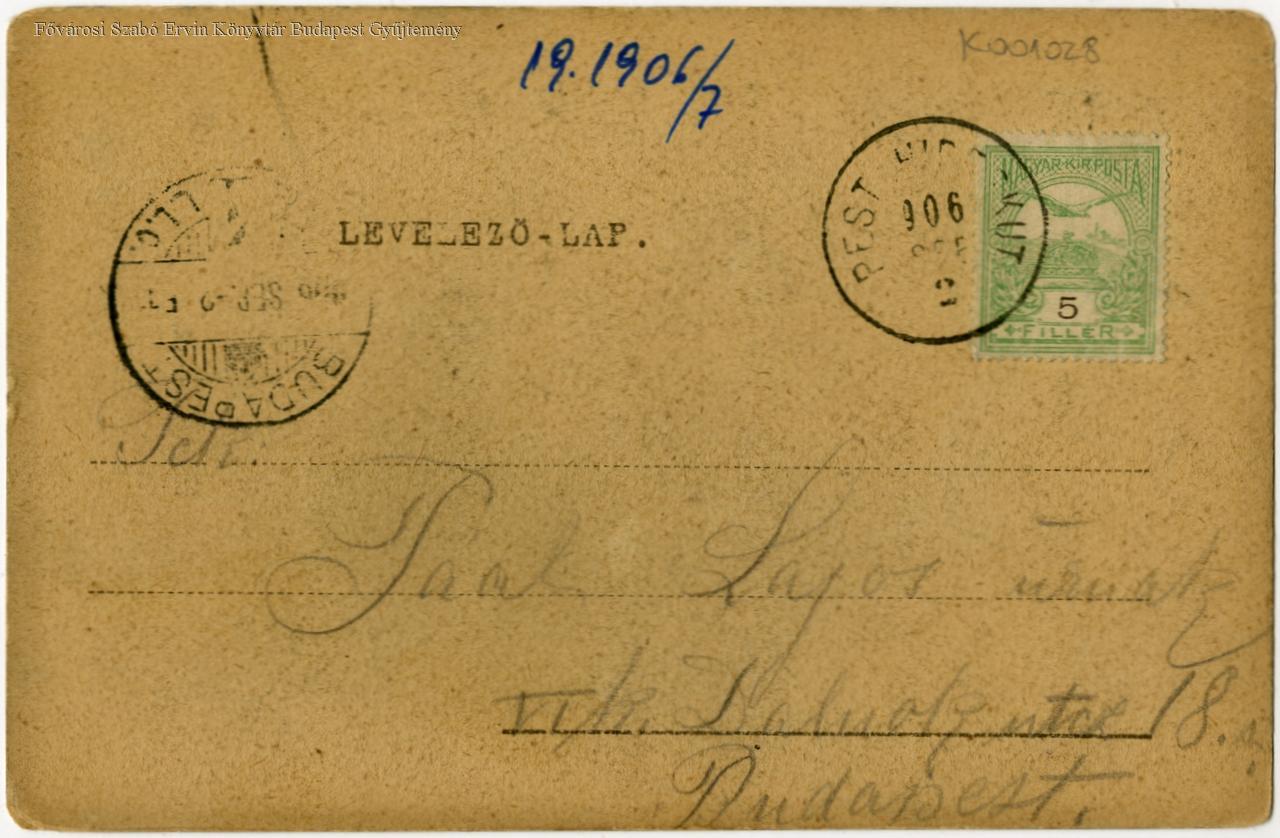 Fővárosi Szabó Ervin Könyvtár Budapest Gyűjtemény
19.1906/7
K001028
PEST KÚT
906
MAGYAR·KIR·POSTA
5
FILLÉR
LEVELEZŐ-LAP.
906 SEP. -2
BUDAPEST
Tek.
Paal Lajos úrnak
VI/k. Dalnok utca 18. s.
Budapest.